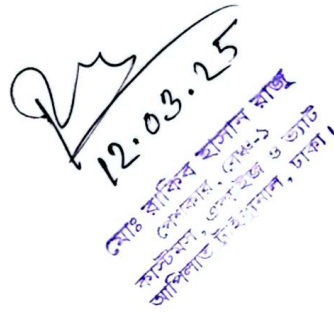 12.03.25
মোঃ রাকিব হাসান রাজু
পেশকার, বেঞ্চ-১
কাস্টমস, এক্সাইজ ও ভ্যাট
আপিলাত ট্রাইব্যুনাল, ঢাকা।